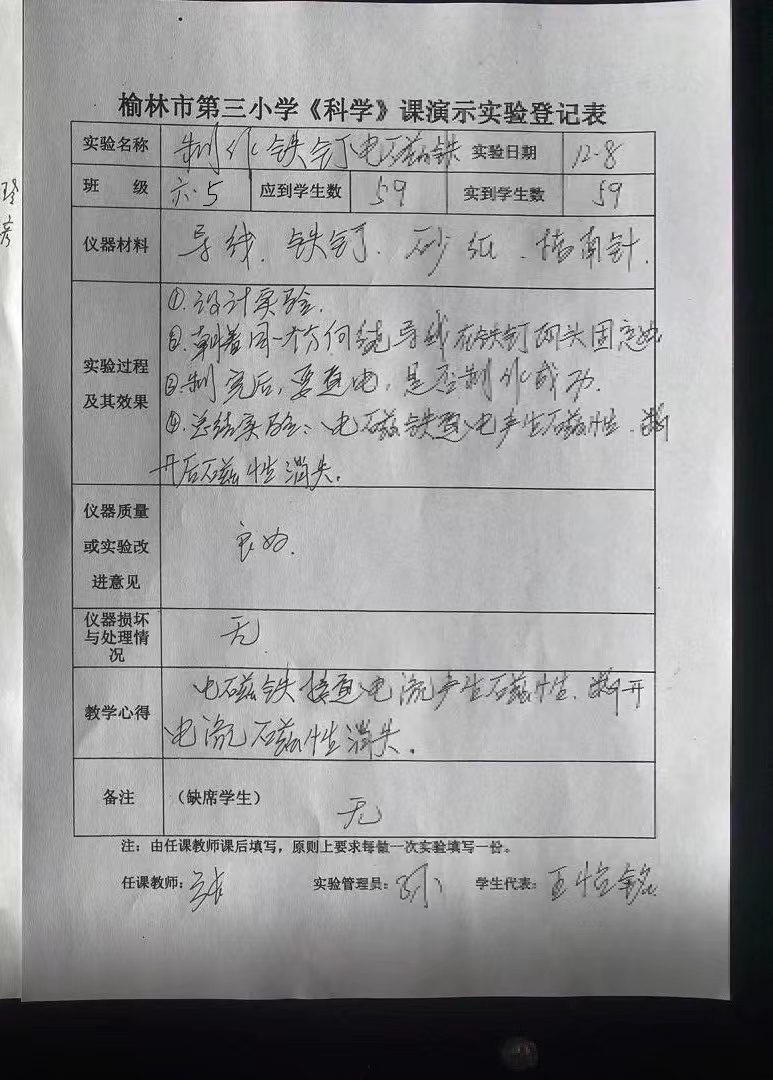 榆林市第三小学《科学》课演示实验登记表
实验名称 制作铁钉电磁铁 实验日期 12-8
班 级 六.5 应到学生数 59 实到学生数 59
仪器材料 导线、铁钉、砂纸、指南针.
实验过程及其效果
①.设计实验.
②.朝着同一个方向绕导线在铁钉两头固定好
③.制完后,要通电,是否制作成功.
④.总结实验:电磁铁通电产生磁性.断
开后磁性消失.
仪器质量
或实验改
进意见
良好.
仪器损坏
与处理情
况
无
教学心得
电磁铁接通电流产生磁性.断开
电流磁性消失.
备注 (缺席学生) 无
注:由任课教师课后填写,原则上要求每做一次实验填写一份。
任课教师: 实验管理员: 学生代表: